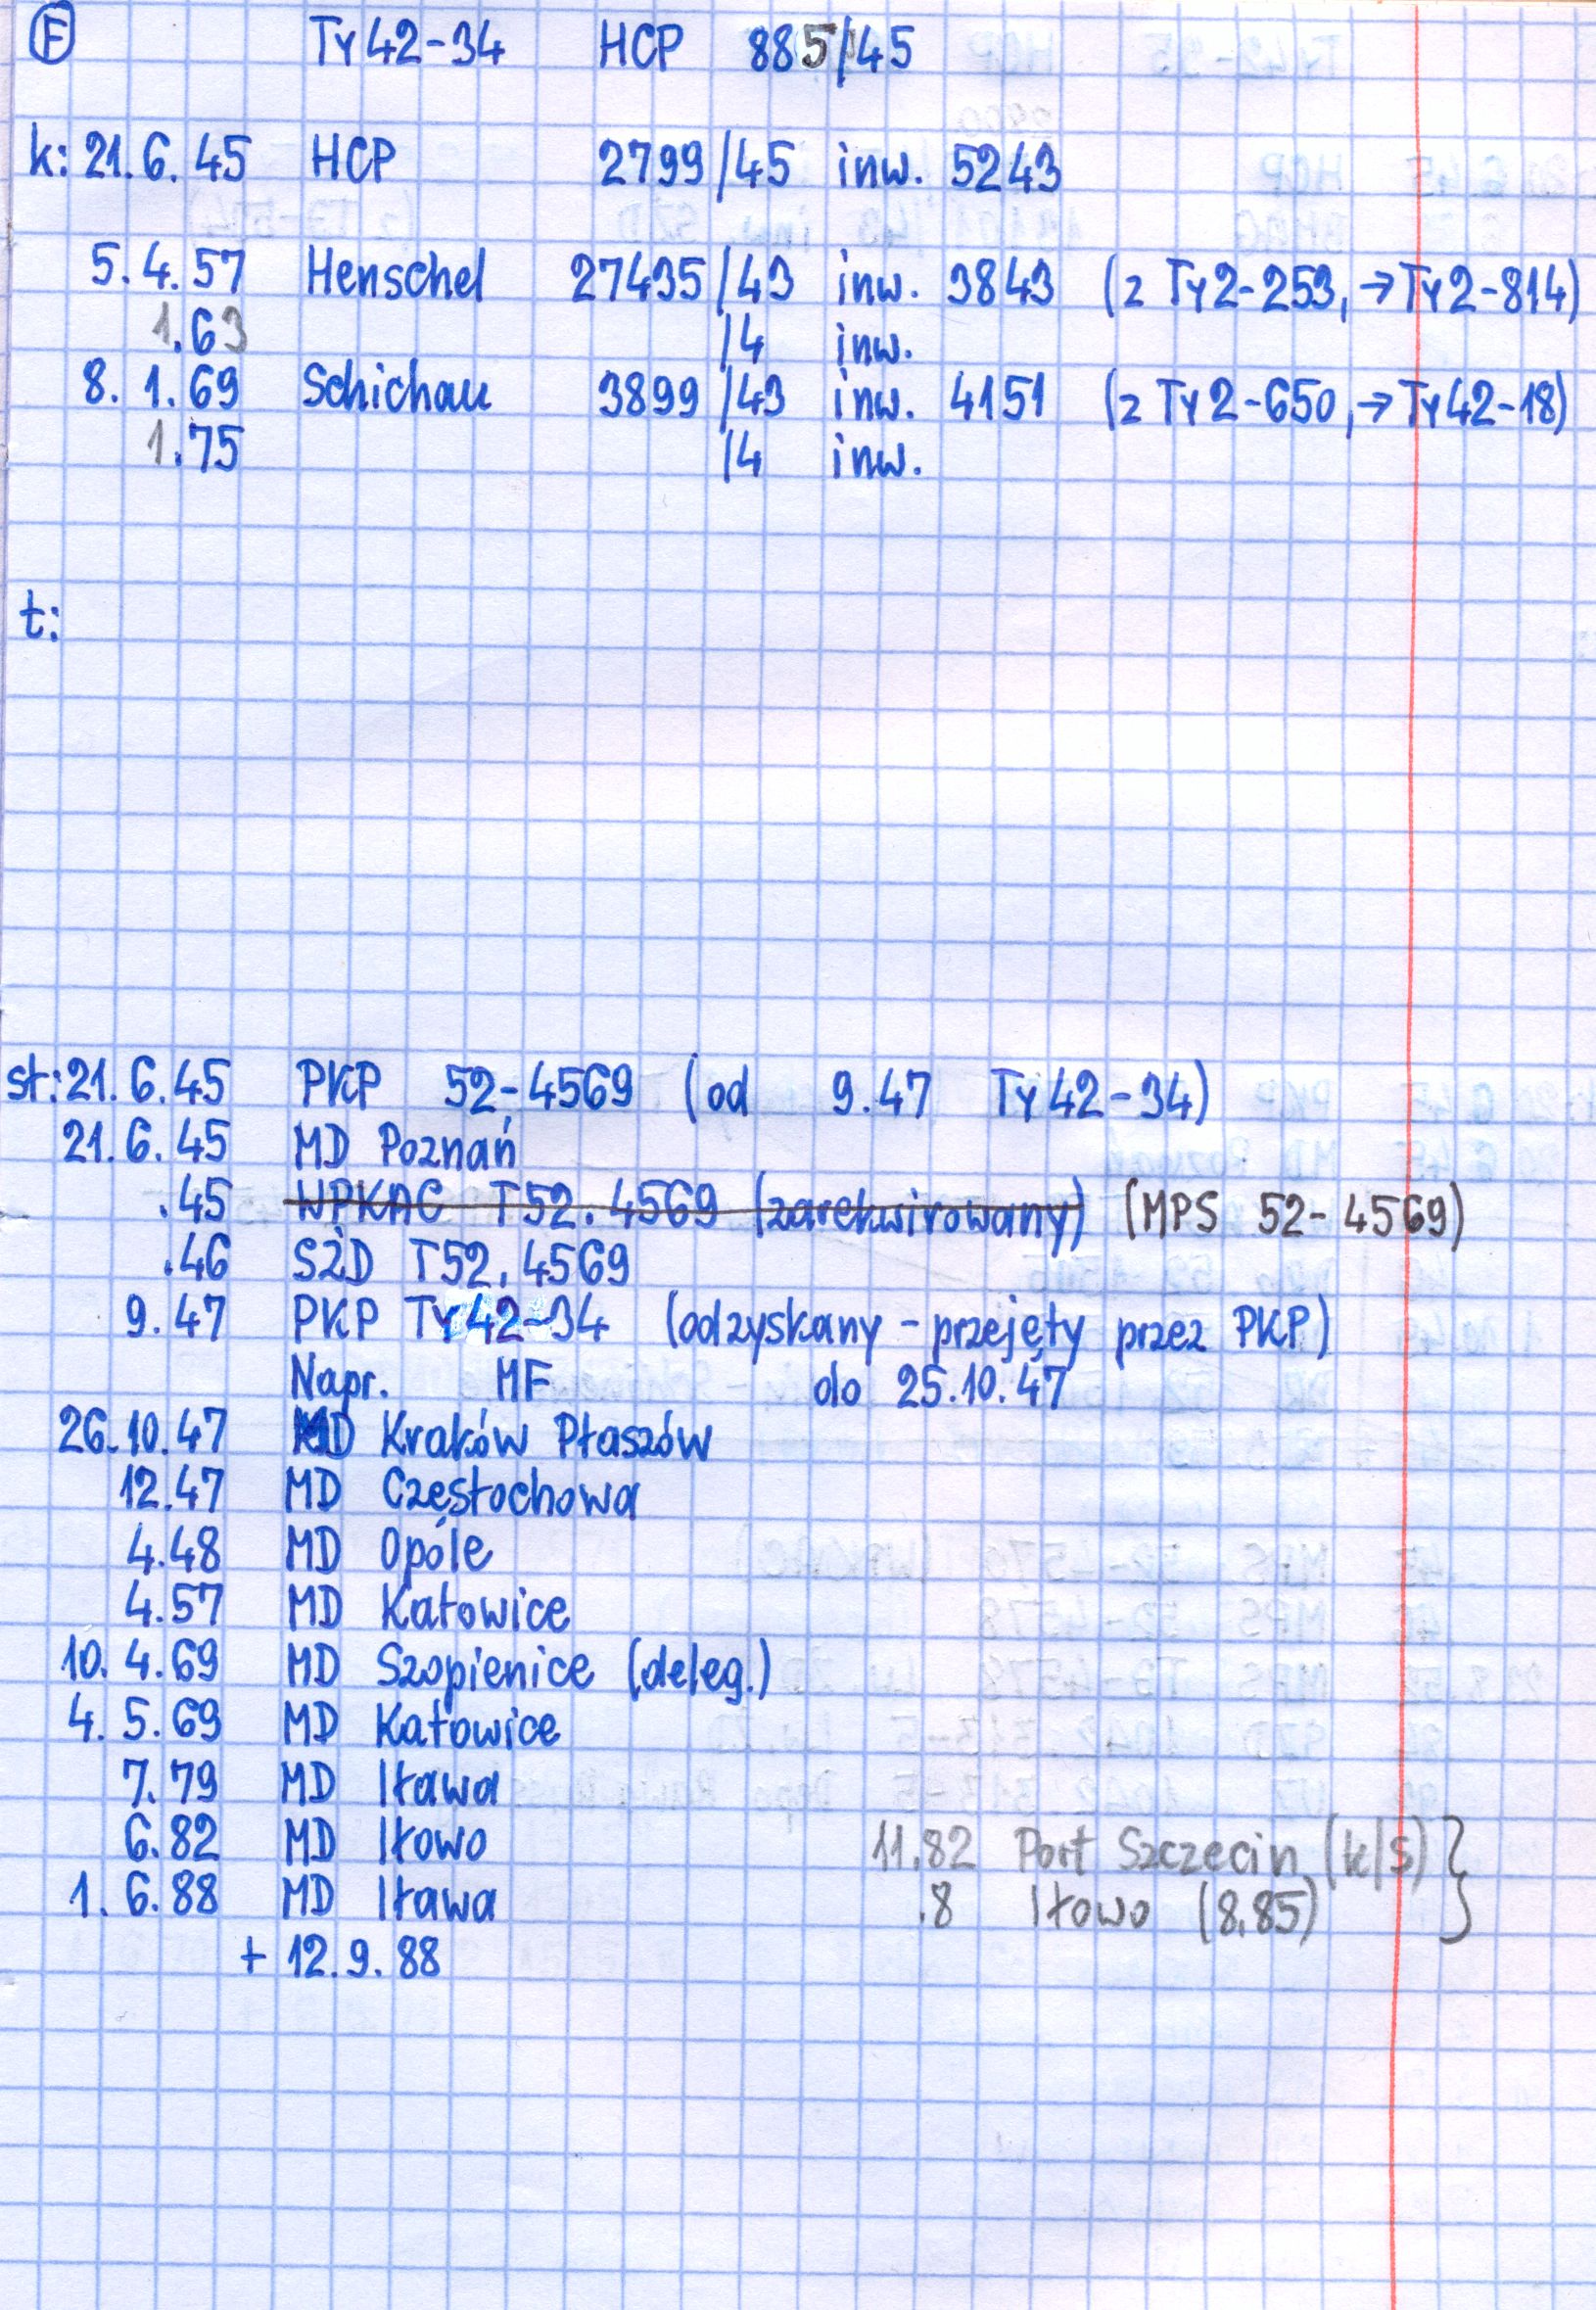 F Ty42-34 HCP 885/45
k: 21.6.45 HCP 2799/45 inw. 5243
5.4.57 Henschel 27435/43 inw. 3843 (z Ty2-253, → Ty2-814)
1.63 /4 inw.
8.1.69 Schichau 3899/43 inw. 4151 (z Ty2-650, → Ty42-18)
1.75 /4 inw.
t:
st: 21.6.45 PKP 52-4569 (od 9.47 Ty42-34)
21.6.45 MD Poznań
.45 WPKAC T52.4569 (zarekwirowany) (MPS 52-4569)
.46 SŻD T52.4569
9.47 PKP Ty42-34 (odzyskany - przejęty przez PKP)
Napr. MF do 25.10.47
26.10.47 MD Kraków Płaszów
12.47 MD Częstochowa
4.48 MD Opole
4.57 MD Katowice
10.4.69 MD Szopienice (deleg.)
4.5.69 MD Katowice
7.79 MD Iława
6.82 MD Iłowo 11.82 Port Szczecin (k/s) }
1.6.88 MD Iława .8 Iłowo (8.85)
+ 12.9.88